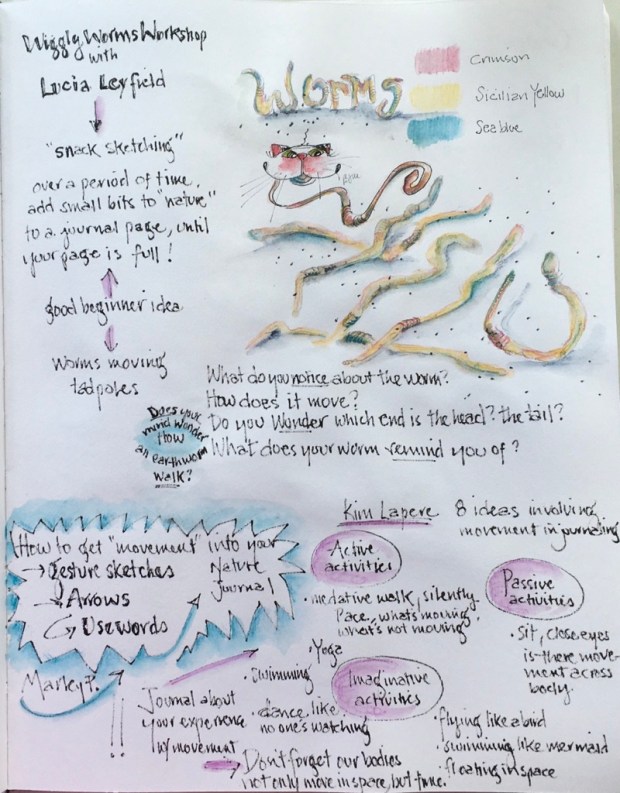 Wiggly Worms Workshop
with
Lucia Leyfield
"snack sketching"
over a period of time,
add small bits to "nature"
to a journal page, until
your page is full!
good beginner idea
worms moving
tadpoles
Worms
Crimson
Sicilian Yellow
Sea blue
What do you notice about the worm?
How does it move?
Do you Wonder which end is the head? the tail?
What does your worm remind you of?
Does your
mind wonder
how
an earthworm
walk?
How to get "movement" into your
Nature
Journal
→ gesture sketches
→ Arrows
Use words
Marley?
!!
Journal about
your experience
w/ movement
Kim Lapere 8 ideas involving
movement in journaling
Active
activities
• medative walk, silently
Pace, what's moving,
what's not moving
• Yoga
• Swimming
• dance like
no one's watching
Passive
activities
• sit, close eyes
is there move-
ment across
body.
Imaginative
activities
• flying like a bird
• swimming like mermaid
• floating in space
→ Don't forget our bodies
not only move in space, but time.